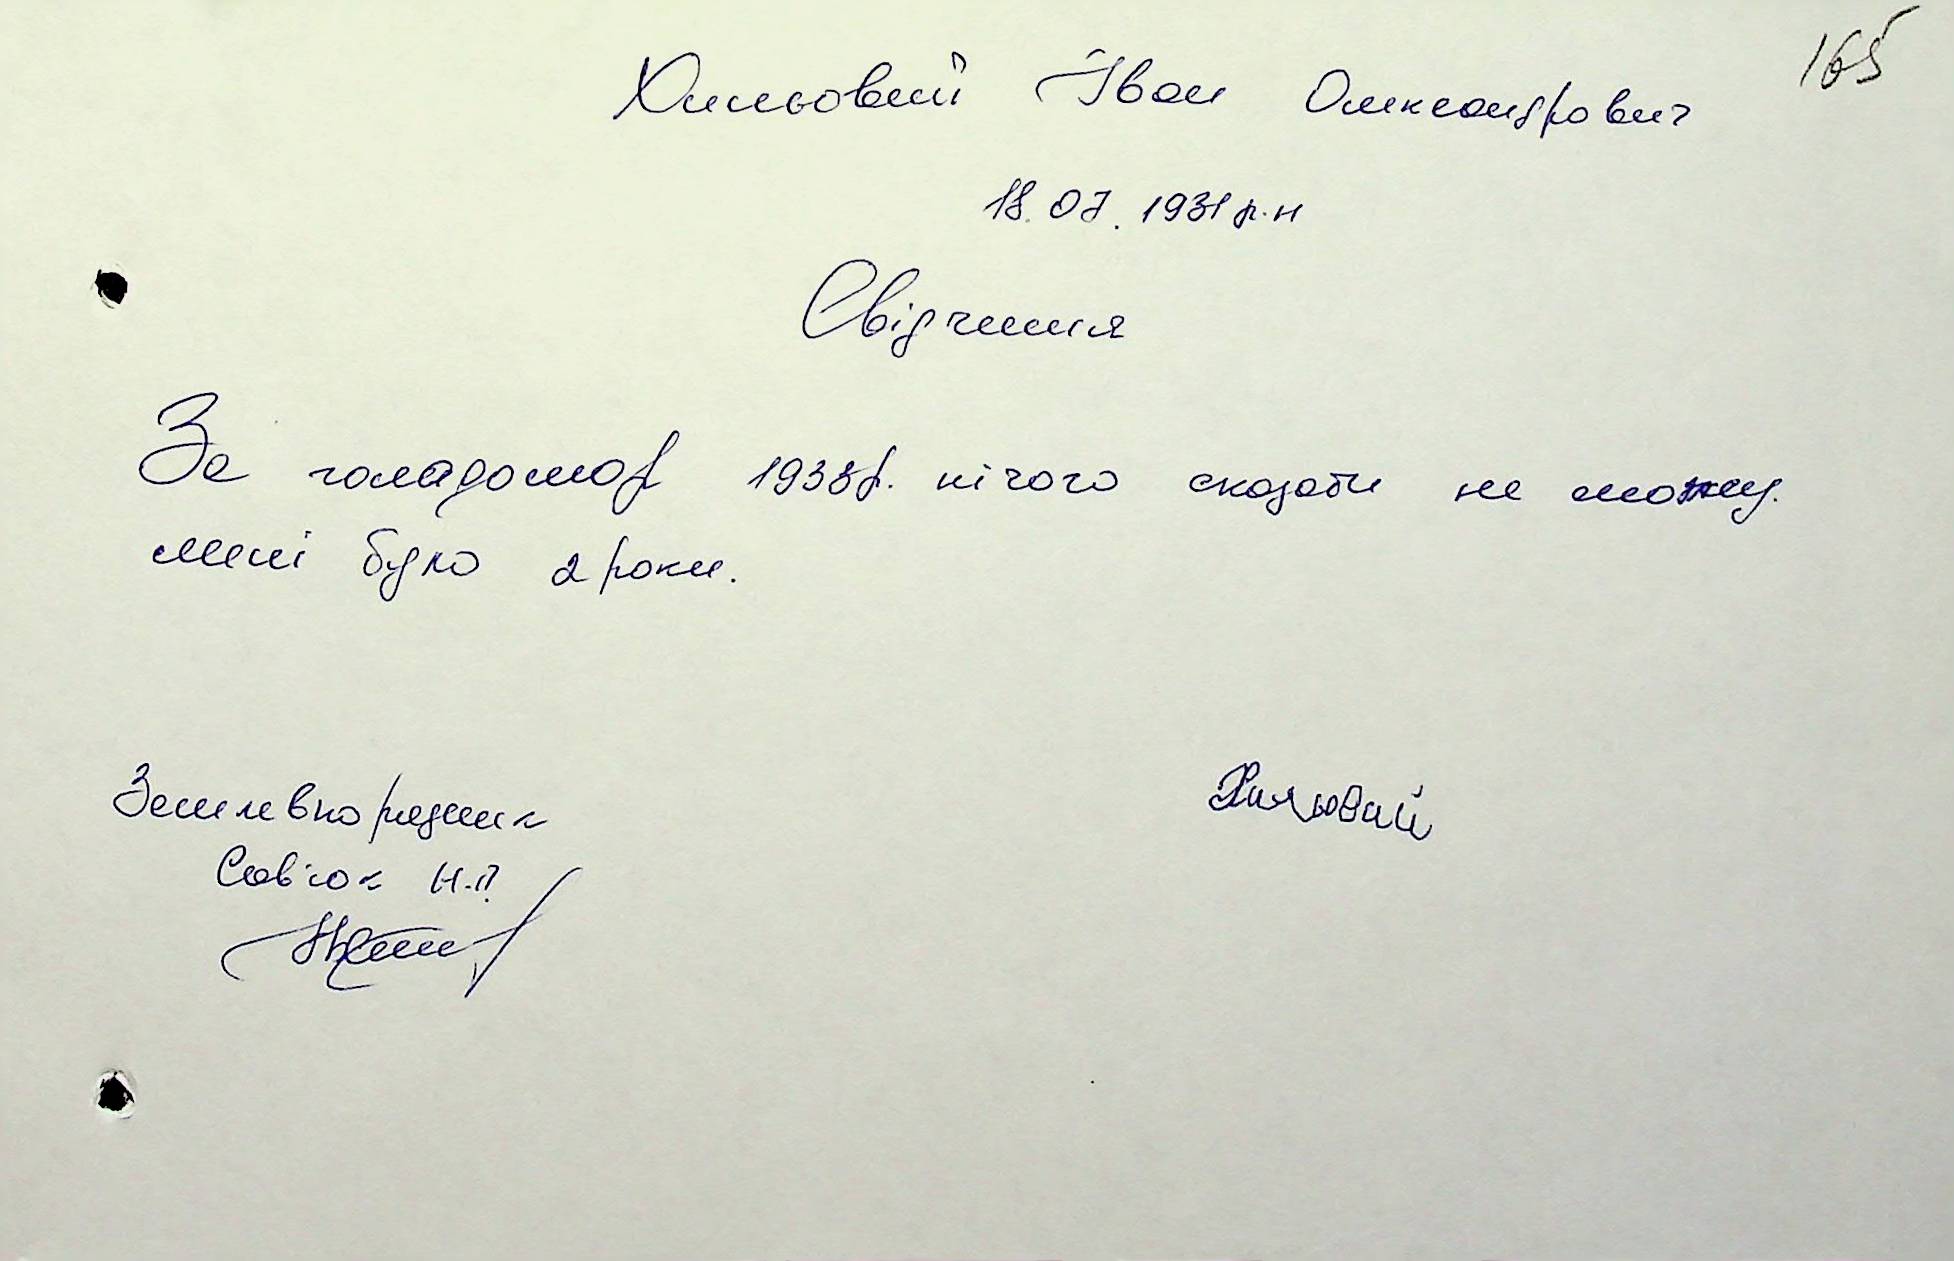 165
Хильовий Іван Олександрович
18.07.1931 р.н
Свідчення
За голодомор 1933р. нічого сказати не можу.
мені було 2 роки.
Землевпорядник
Хильовий
Сав'юк Н.П